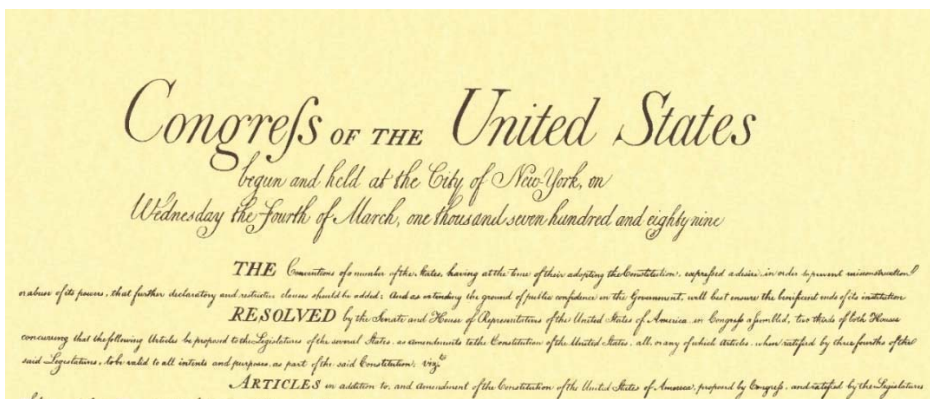 Congreſs OF THE United States
begun and held at the City of New-York, on
Wednesday the Fourth of March, one thousand seven hundred and eighty nine
THE Conventions of a number of the States, having at the time of their adopting the Constitution, expreſsed a desire, in order to prevent misconstruction
or abuse of its powers, that further declaratory and restrictive clauses should be added: And as extending the ground of public confidence in the Government, will best ensure the beneficent ends of its institution
RESOLVED by the Senate and House of Representatives of the United States of America, in Congreſs aſsembled, two thirds of both Houses
concurring, that the following Articles be proposed to the Legislatures of the several States, as amendments to the Constitution of the United States, all, or any of which Articles, when ratified by three fourths of the
said Legislatures, to be valid to all intents and purposes, as part of the said Constitution. vizt.
ARTICLES in addition to, and amendment of the Constitution of the United States of America, proposed by Congreſs, and ratified by the Legislatures